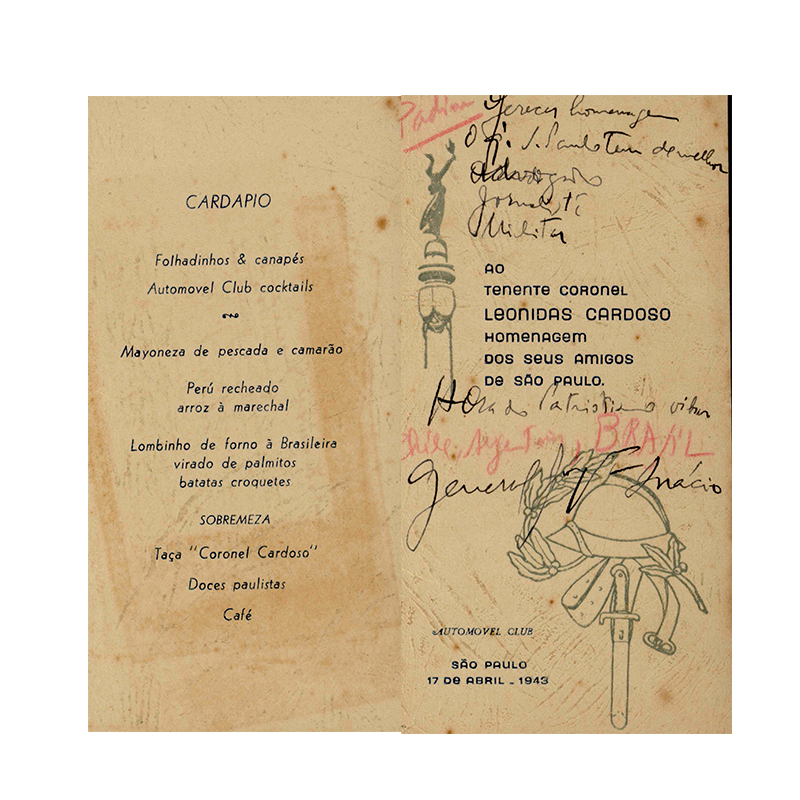 CARDAPIO
Folhadinhos & canapés
Automovel Club cocktails
Mayoneza de pescada e camarão
Perú recheado
arroz à marechal
Lombinho de forno à Brasileira
virado de palmitos
batatas croquetes
SOBREMEZA
Taça "Coronel Cardoso"
Doces paulistas
Café
homenagem
O q. S. Paulo tem de melhor
Advogado
Militar
AO
TENENTE CORONEL
LEONIDAS CARDOSO
HOMENAGEM
DOS SEUS AMIGOS
DE SÃO PAULO.
Hora do Patriotismo
BRASIL
General Inácio
AUTOMOVEL CLUB
SÃO PAULO
17 DE ABRIL - 1943